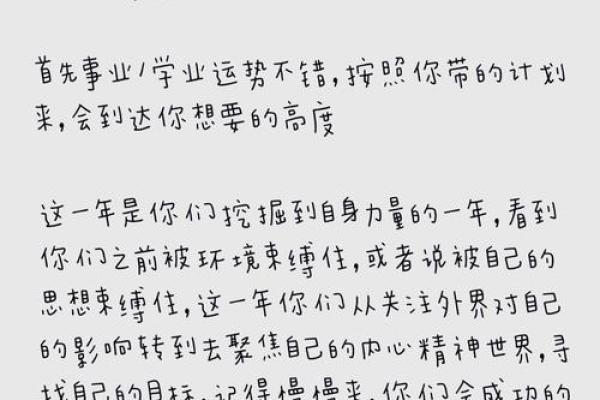 首先事业/学业运势不错,按照你带的计划
来,会到达你想要的高度
这一年是你们挖掘到自身力量的一年,看到
你们之前被环境束缚住,或者说被自己的
思想束缚住,这一年你们从关注外界对自己
的影响转到去聚焦自己的内心精神世界,寻
找自己的目标,记得慢慢来,你们会成功的